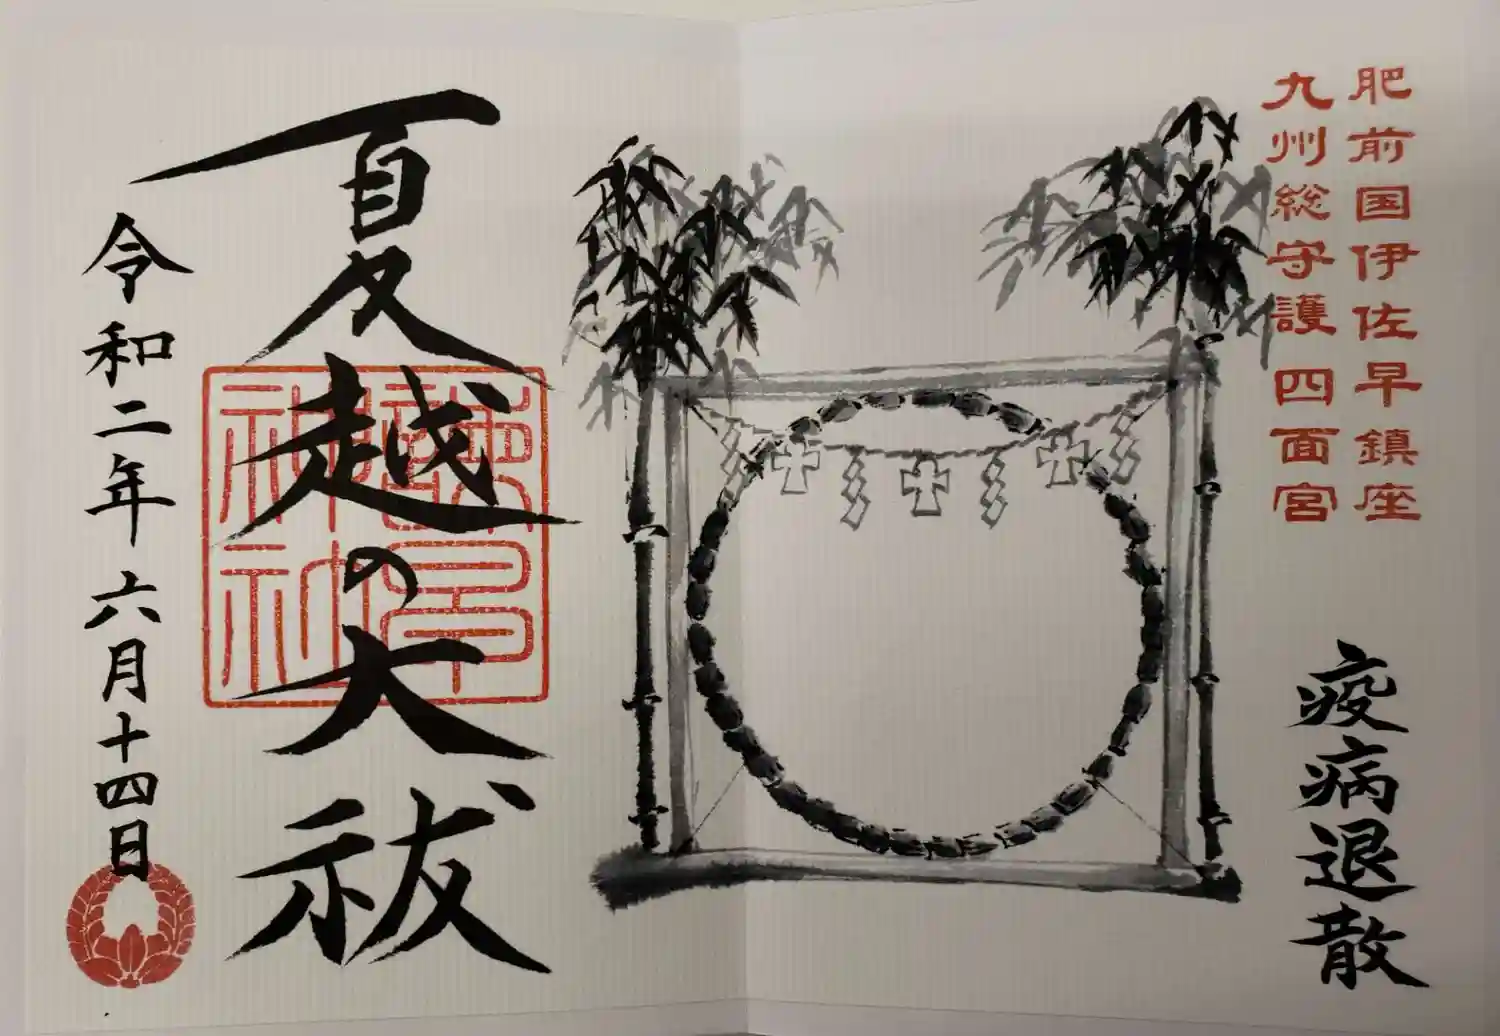 肥前国伊佐早鎮座
九州総守護 四面宮
疫病退散
夏越の大祓
諫早
神社
令和二年六月十四日